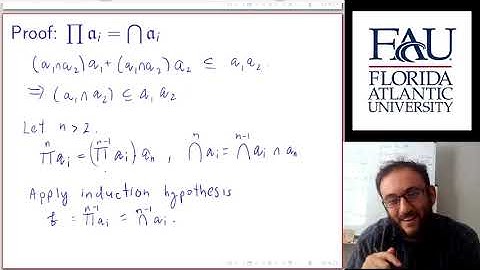 Proof: ∏ 𝔞ᵢ = ⋂ 𝔞ᵢ
(a₁∩a₂)a₁ + (a₁∩a₂)a₂ ⊆ a₁a₂.
⇒ (a₁∩a₂) ⊆ a₁a₂
Let n>2.
∏ⁿ aᵢ = (∏ⁿ⁻¹ aᵢ) aₙ , ⋂ⁿ aᵢ = ⋂ⁿ⁻¹ aᵢ ∩ aₙ
Apply induction hypothesis
b = ∏ⁿ⁻¹ aᵢ = ⋂ⁿ⁻¹ aᵢ.
FAU
FLORIDA
ATLANTIC
UNIVERSITY